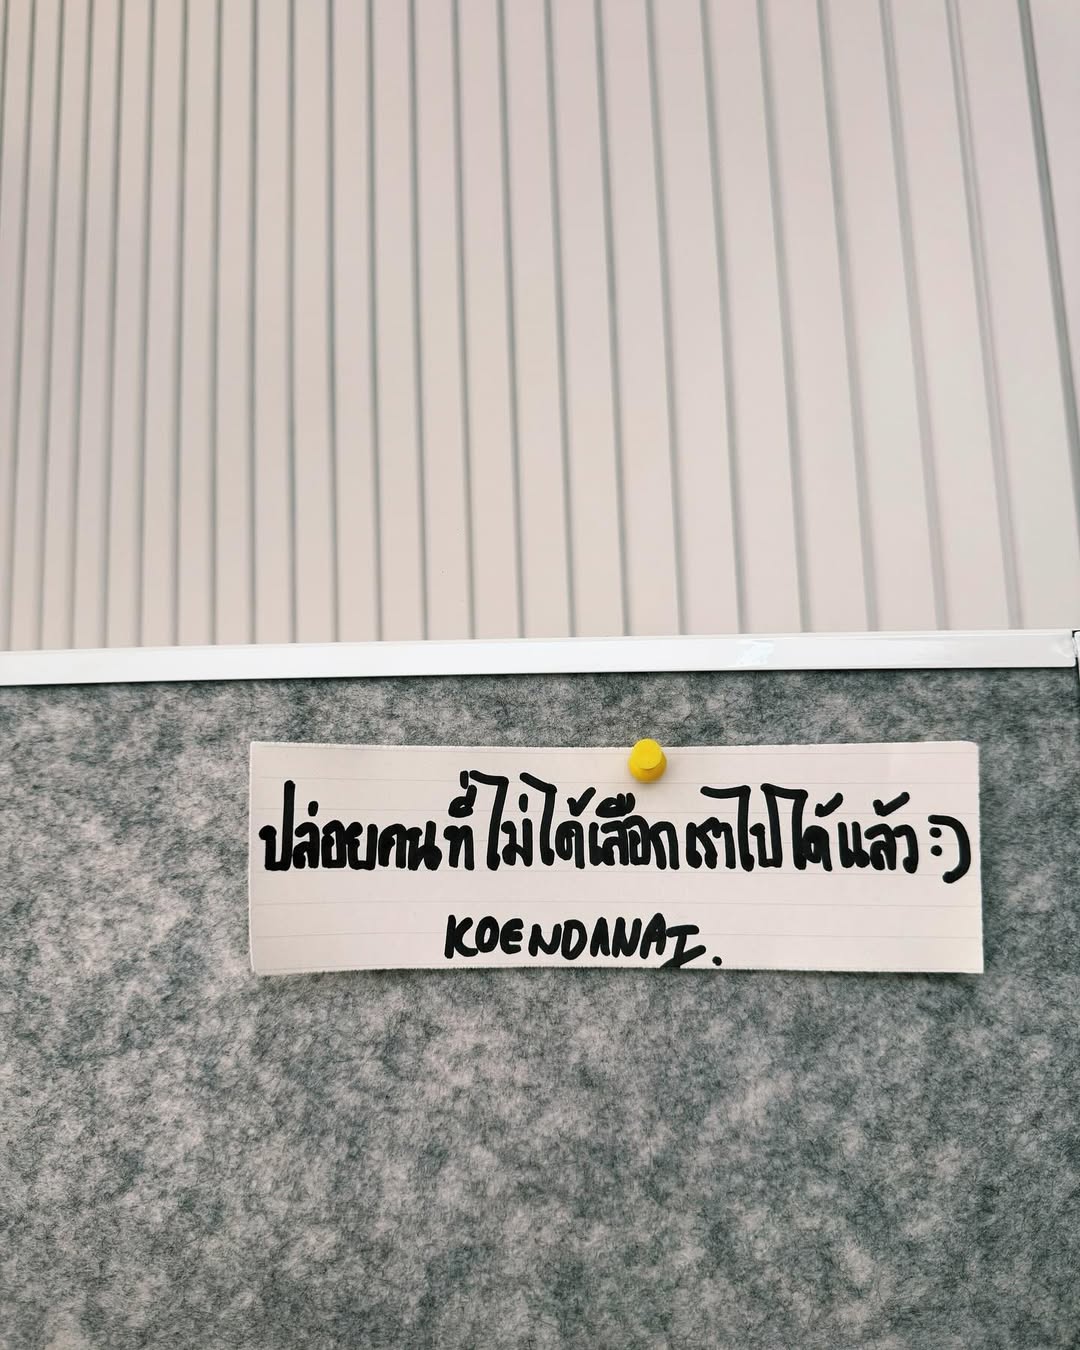 ปล่อยคนที่ไม่ได้เลือกเราไปได้แล้ว :)
KOENDANAI.